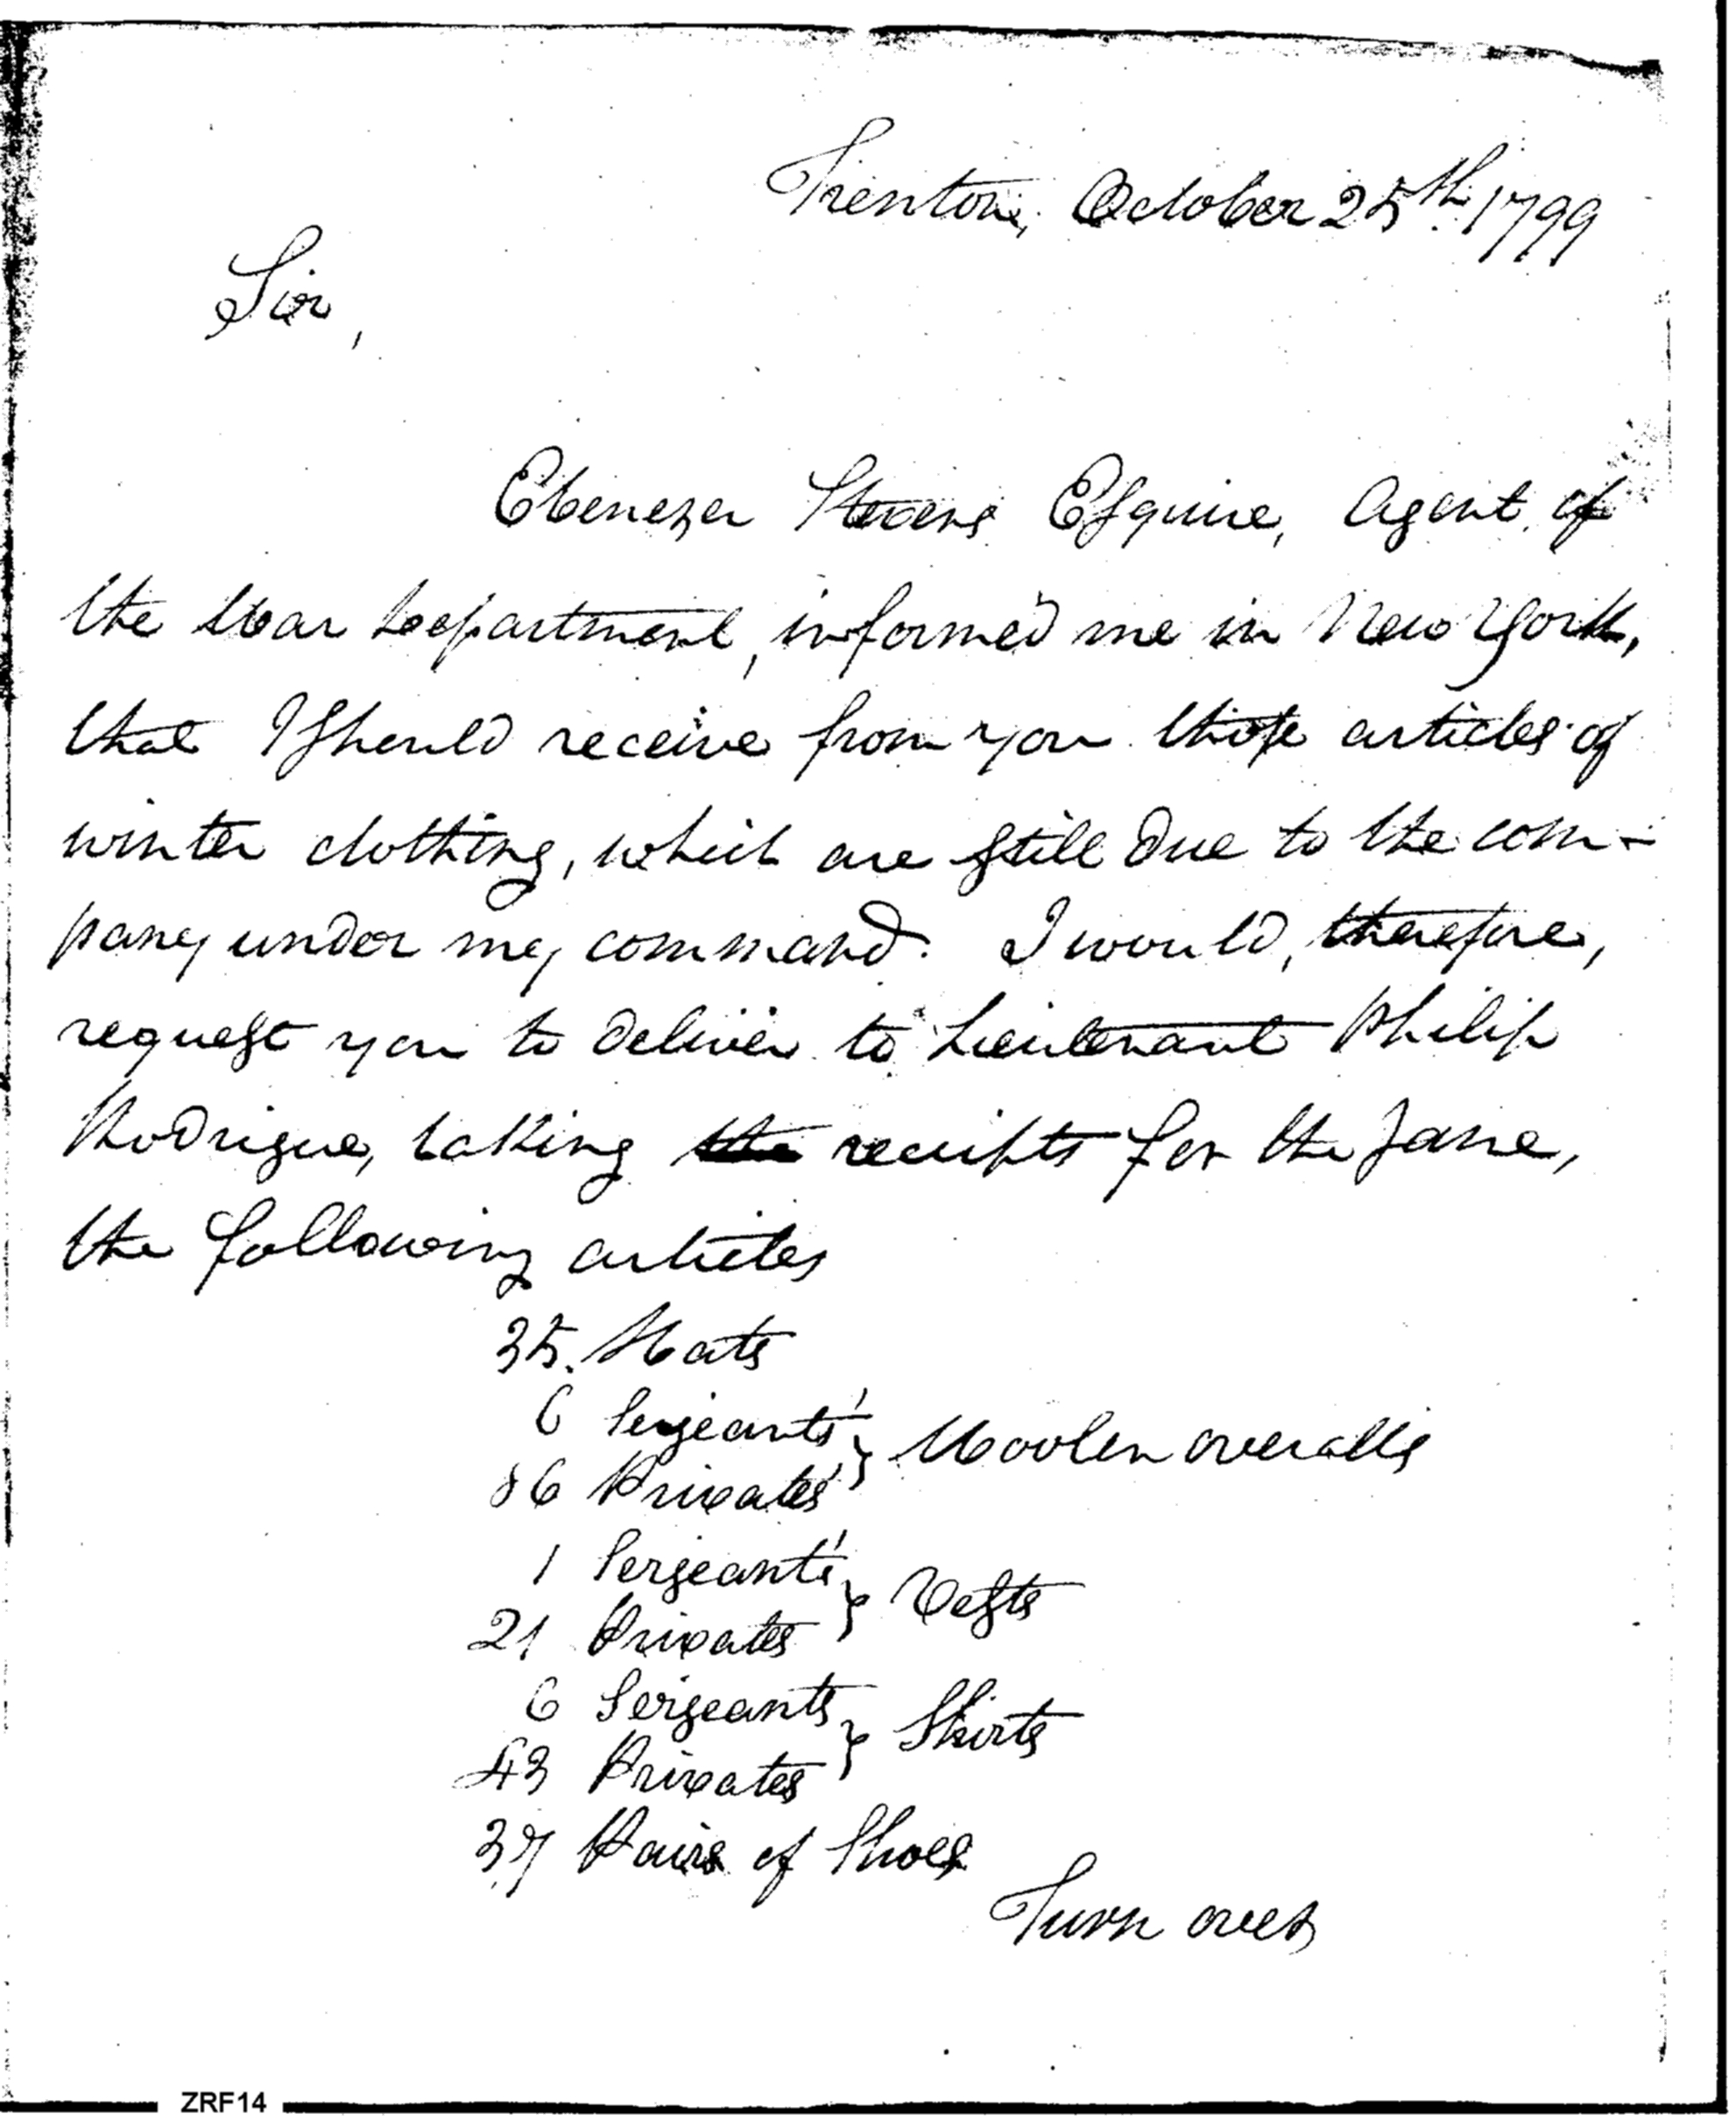 Trenton, October 25th. 1799
Sir,
Ebenezer Stevens Esquire, Agent of
the War Department, informed me in New York,
that I should receive from you those articles of
winter clothing, which are still due to the com-
pany under my command. I would, therefore,
request you to deliver to Lieutenant Philip
Rodrigue, taking the receipts for the same,
the following articles
35. Hats
6 Sergeants' } Woolen overalls
86 Privates'
1 Sergeant's } Vests
21 Privates
6 Sergeants } Shirts
43 Privates
37 Pairs of Shoes
Turn over
ZRF14